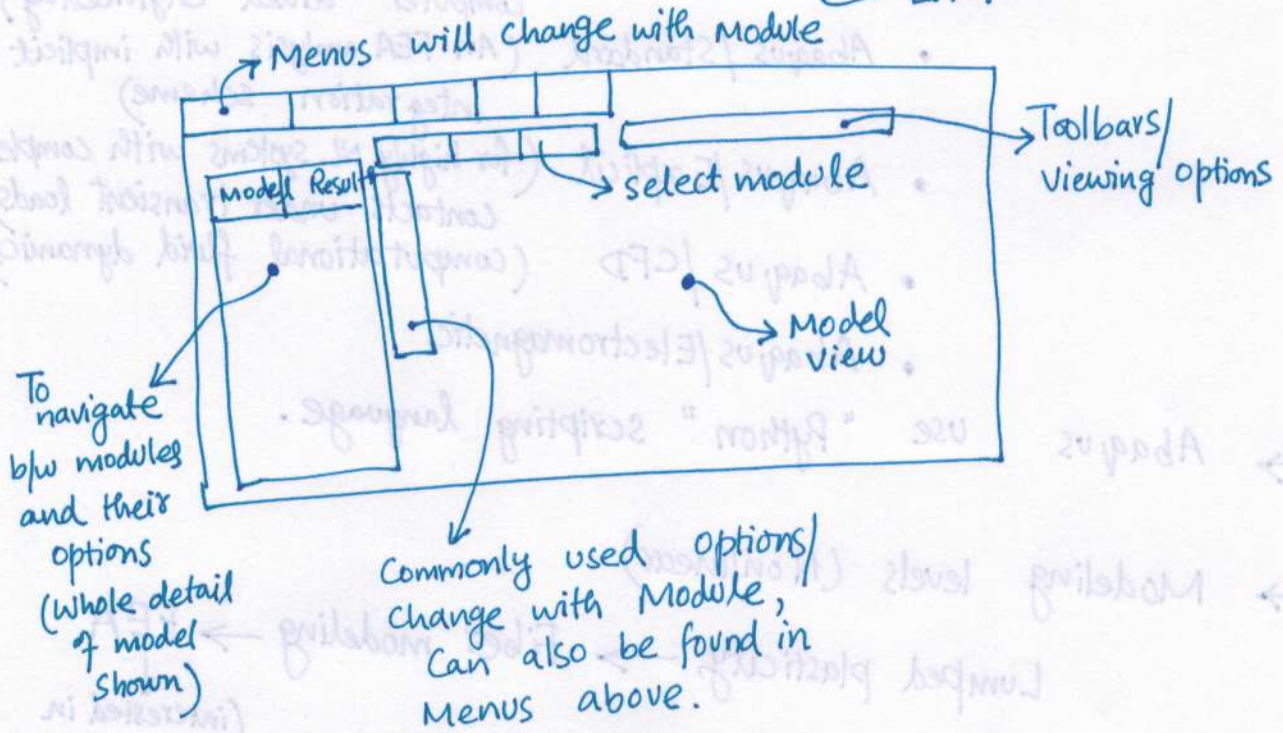 Menus will change with Module
Toolbars/
viewing options
select module
Model Result
Model
view
To
navigate
b/w modules
and their
options
(Whole detail
of model
shown)
Commonly used options/
Change with Module,
Can also be found in
Menus above.